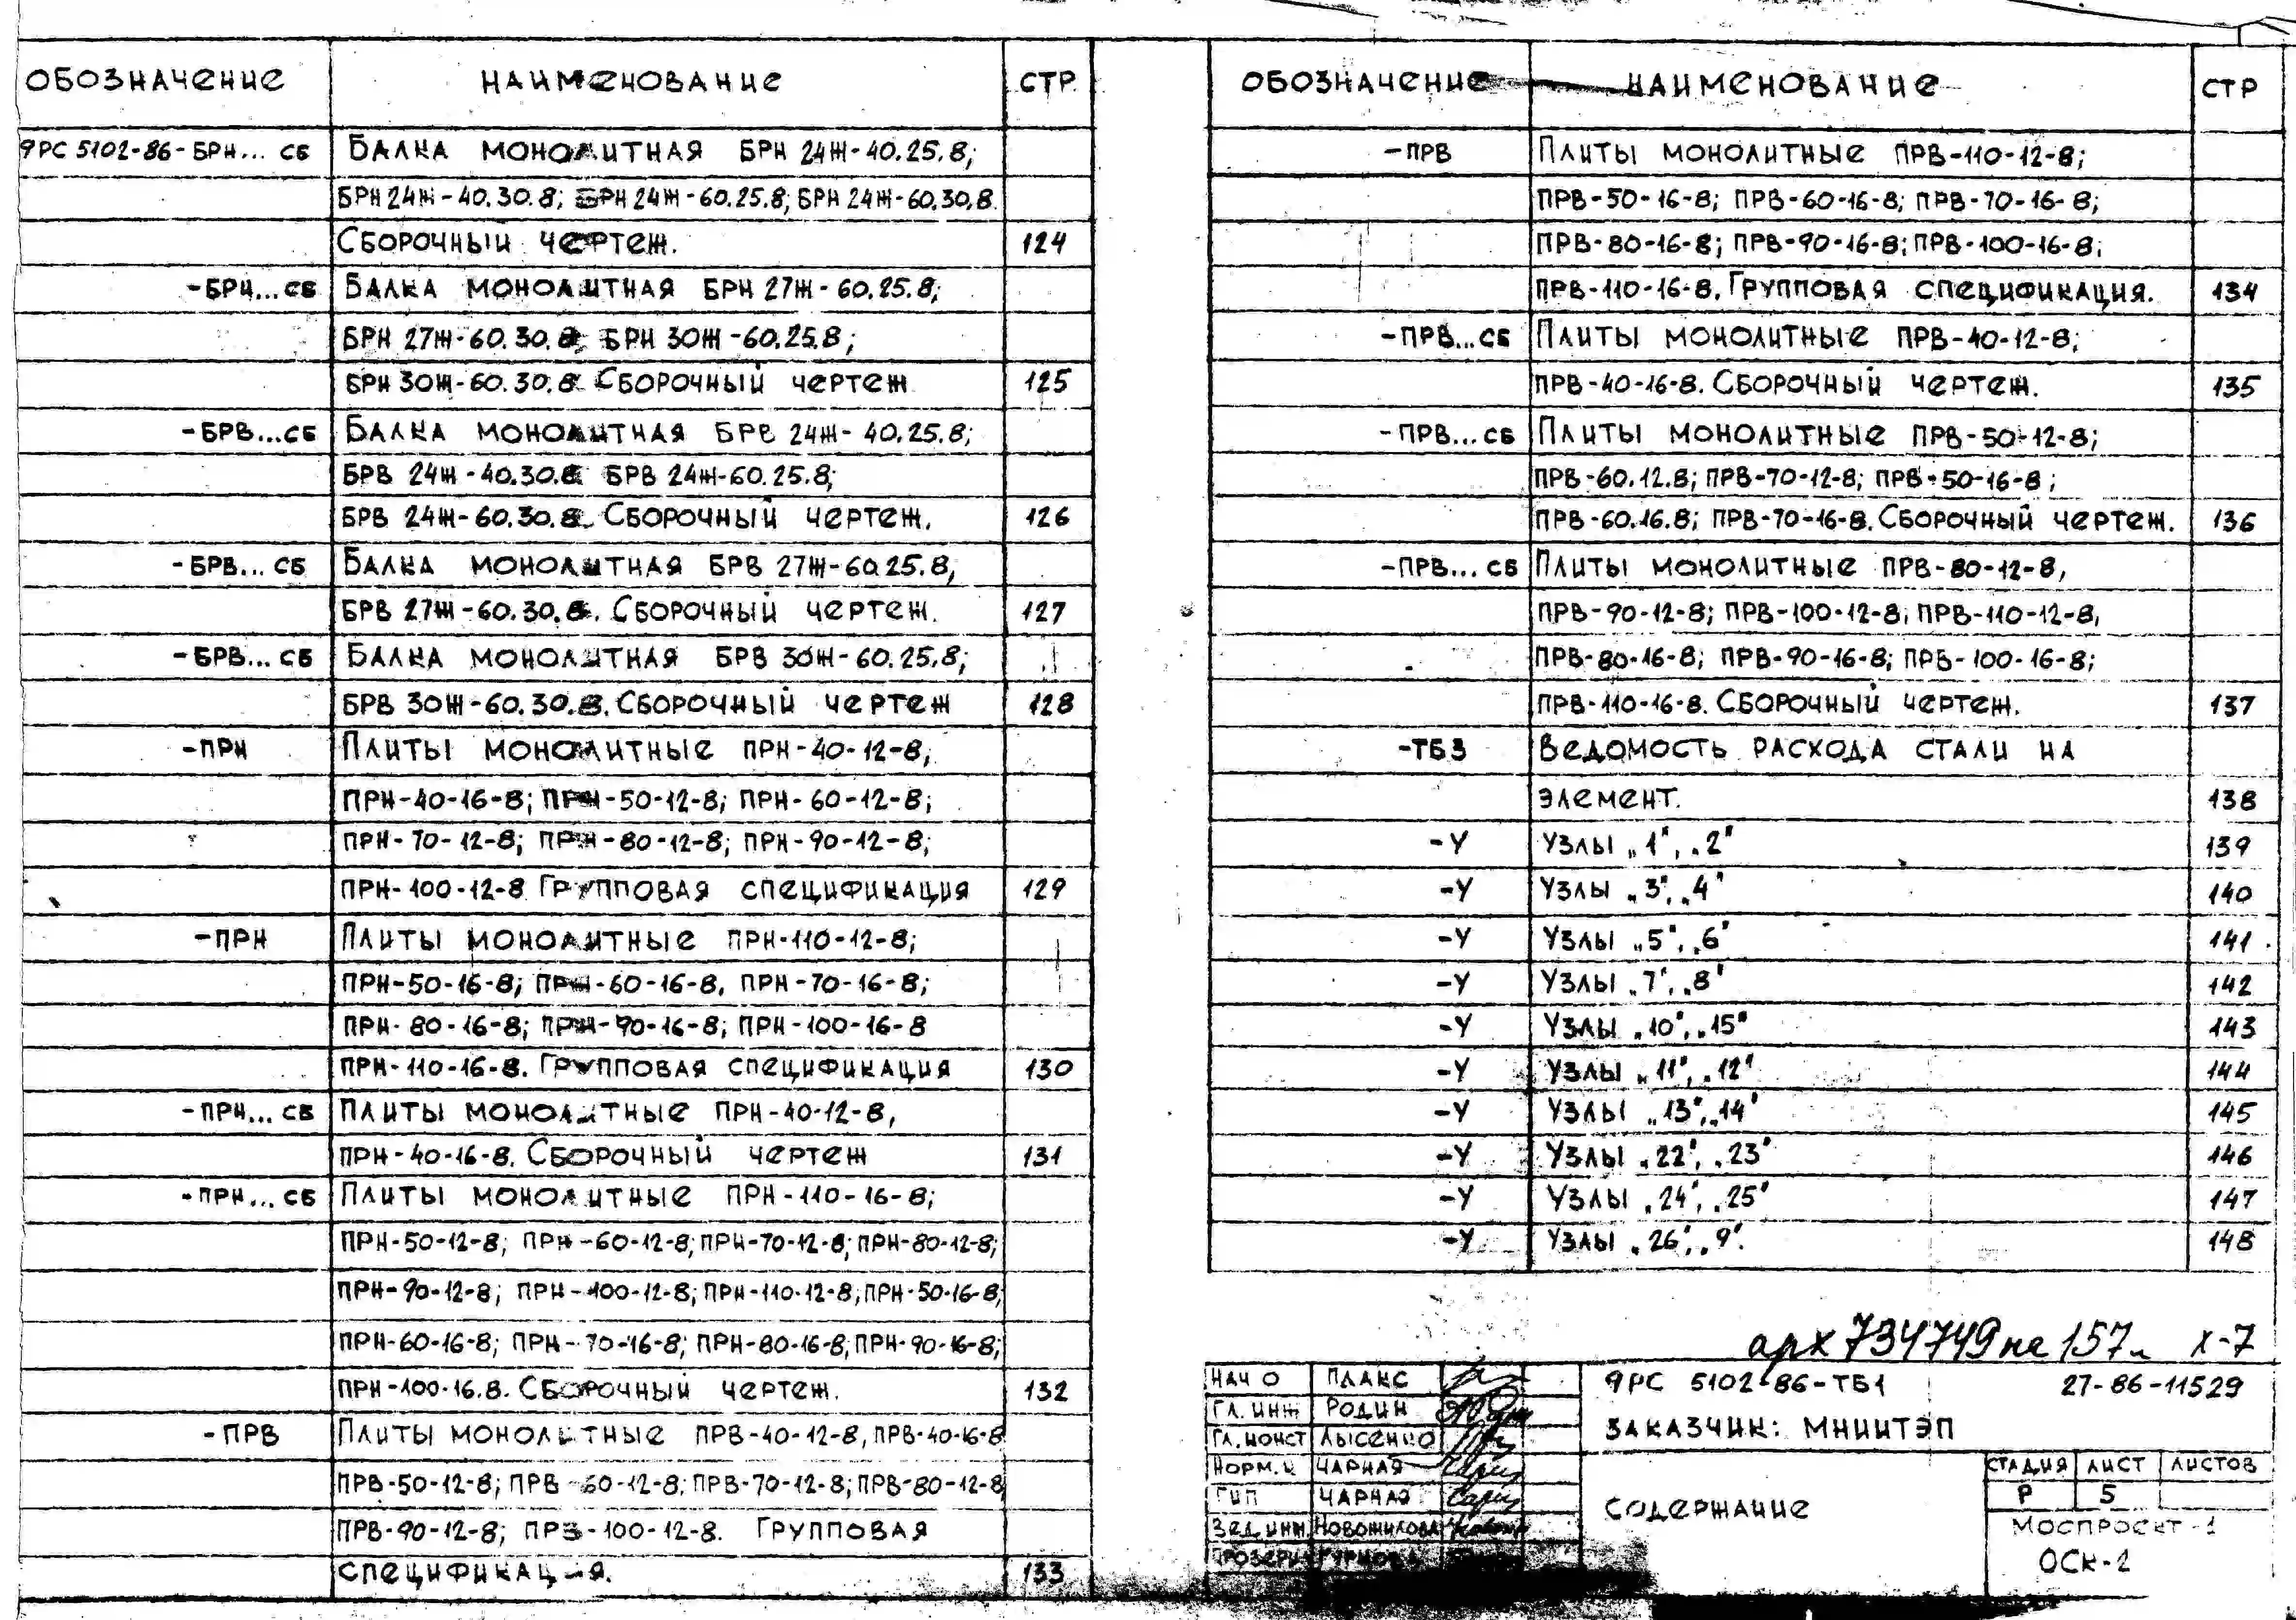 ОБОЗНАЧЕНИЕ НАИМЕНОВАНИЕ СТР
9РС 5102-86-БРН... СБ БАЛКА МОНОЛИТНАЯ БРН 24Ж-40.25.8;
БРН 24Ж-40.30.8; БРН 24Ж-60.25.8; БРН 24Ж-60.30.8.
СБОРОЧНЫЙ ЧЕРТЕЖ. 124
-БРН...СБ БАЛКА МОНОЛИТНАЯ БРН 27Ж-60.25.8;
БРН 27Ж-60.30.8; БРН 30Ж-60.25.8;
БРН 30Ж-60.30.8. СБОРОЧНЫЙ ЧЕРТЕЖ 125
-БРВ...СБ БАЛКА МОНОЛИТНАЯ БРВ 24Ж-40.25.8;
БРВ 24Ж-40.30.8 БРВ 24Ж-60.25.8;
БРВ 24Ж-60.30.8. СБОРОЧНЫЙ ЧЕРТЕЖ. 126
-БРВ... СБ БАЛКА МОНОЛИТНАЯ БРВ 27Ж-60.25.8,
БРВ 27Ж-60.30.8. СБОРОЧНЫЙ ЧЕРТЕЖ. 127
-БРВ... СБ БАЛКА МОНОЛИТНАЯ БРВ 30Ж-60.25.8;
БРВ 30Ж-60.30.8. СБОРОЧНЫЙ ЧЕРТЕЖ 128
-ПРН ПЛИТЫ МОНОЛИТНЫЕ ПРН-40-12-8;
ПРН-40-16-8; ПРН-50-12-8; ПРН-60-12-8;
ПРН-70-12-8; ПРН-80-12-8; ПРН-90-12-8;
ПРН-100-12-8 ГРУППОВАЯ СПЕЦИФИКАЦИЯ 129
-ПРН ПЛИТЫ МОНОЛИТНЫЕ ПРН-110-12-8;
ПРН-50-16-8; ПРН-60-16-8, ПРН-70-16-8;
ПРН-80-16-8; ПРН-90-16-8; ПРН-100-16-8
ПРН-110-16-8. ГРУППОВАЯ СПЕЦИФИКАЦИЯ 130
-ПРН... СБ ПЛИТЫ МОНОЛИТНЫЕ ПРН-40-12-8,
ПРН-40-16-8. СБОРОЧНЫЙ ЧЕРТЕЖ 131
-ПРН... СБ ПЛИТЫ МОНОЛИТНЫЕ ПРН-110-16-8;
ПРН-50-12-8; ПРН-60-12-8; ПРН-70-12-8; ПРН-80-12-8;
ПРН-90-12-8; ПРН-100-12-8; ПРН-110-12-8; ПРН-50-16-8;
ПРН-60-16-8; ПРН-70-16-8; ПРН-80-16-8; ПРН-90-16-8;
ПРН-100-16.8. СБОРОЧНЫЙ ЧЕРТЕЖ. 132
-ПРВ ПЛИТЫ МОНОЛИТНЫЕ ПРВ-40-12-8, ПРВ-40-16-8
ПРВ-50-12-8; ПРВ-60-12-8; ПРВ-70-12-8; ПРВ-80-12-8
ПРВ-90-12-8; ПРВ-100-12-8. ГРУППОВАЯ
СПЕЦИФИКАЦИЯ. 133
ОБОЗНАЧЕНИЕ НАИМЕНОВАНИЕ СТР
-ПРВ ПЛИТЫ МОНОЛИТНЫЕ ПРВ-110-12-8;
ПРВ-50-16-8; ПРВ-60-16-8; ПРВ-70-16-8;
ПРВ-80-16-8; ПРВ-90-16-8; ПРВ-100-16-8;
ПРВ-110-16-8. ГРУППОВАЯ СПЕЦИФИКАЦИЯ. 134
-ПРВ...СБ ПЛИТЫ МОНОЛИТНЫЕ ПРВ-40-12-8;
ПРВ-40-16-8. СБОРОЧНЫЙ ЧЕРТЕЖ. 135
-ПРВ...СБ ПЛИТЫ МОНОЛИТНЫЕ ПРВ-50-12-8;
ПРВ-60.12.8; ПРВ-70-12-8; ПРВ-50-16-8;
ПРВ-60.16.8; ПРВ-70-16-8. СБОРОЧНЫЙ ЧЕРТЕЖ. 136
-ПРВ...СБ ПЛИТЫ МОНОЛИТНЫЕ ПРВ-80-12-8,
ПРВ-90-12-8; ПРВ-100-12-8; ПРВ-110-12-8,
ПРВ-80-16-8; ПРВ-90-16-8; ПРВ-100-16-8;
ПРВ-110-16-8. СБОРОЧНЫЙ ЧЕРТЕЖ. 137
-ТБ3 ВЕДОМОСТЬ РАСХОДА СТАЛИ НА
ЭЛЕМЕНТ. 138
-У УЗЛЫ „1", „2" 139
-У УЗЛЫ „3", „4" 140
-У УЗЛЫ „5", „6" 141
-У УЗЛЫ „7", „8" 142
-У УЗЛЫ „10", „15" 143
-У УЗЛЫ „11", „12" 144
-У УЗЛЫ „13", „14" 145
-У УЗЛЫ „22", „23" 146
-У УЗЛЫ „24", „25" 147
-У УЗЛЫ „26", „9". 148
арх 734749 на 157л х-7
НАЧ О ПЛАКС
ГЛ. ИНЖ РОДИН
ГЛ. КОНСТ ЛЫСЕНКО
НОРМ. К ЧАРНАЯ
ГИП ЧАРНАЯ
ВЕД. ИНЖ. НОВОЖИЛОВА
ПРОВЕРИЛ
9РС 5102-86-ТБ1 27-86-11529
ЗАКАЗЧИК: МНИИТЭП
СОДЕРЖАНИЕ
СТАДИЯ ЛИСТ ЛИСТОВ
Р 5
МОСПРОЕКТ-1
ОСК-2